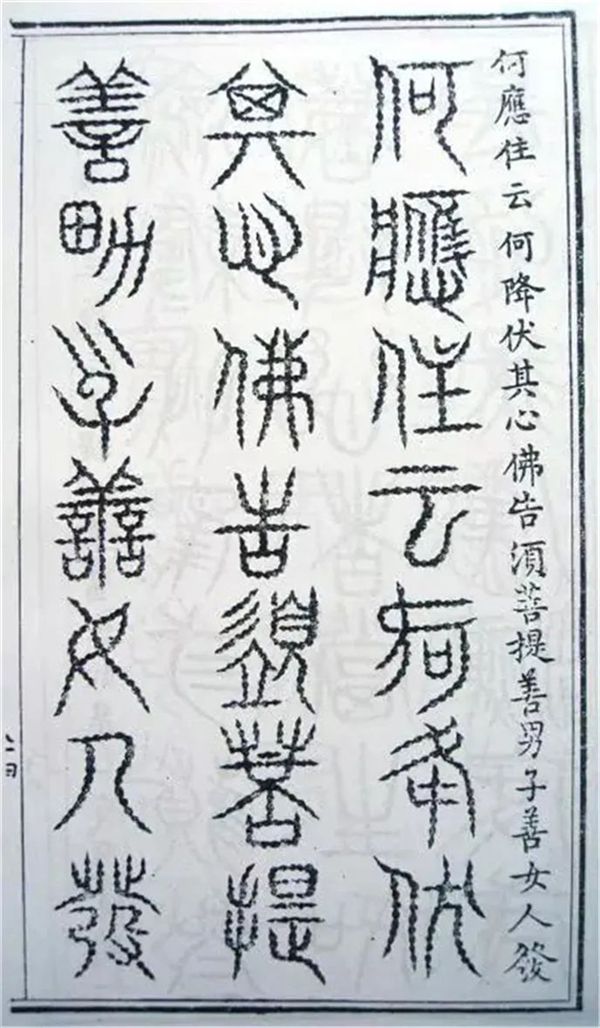 何應住云何降伏其心佛告須菩提善男子善女人發
何應住云何降伏
其心佛告須菩提
善男子善女人發